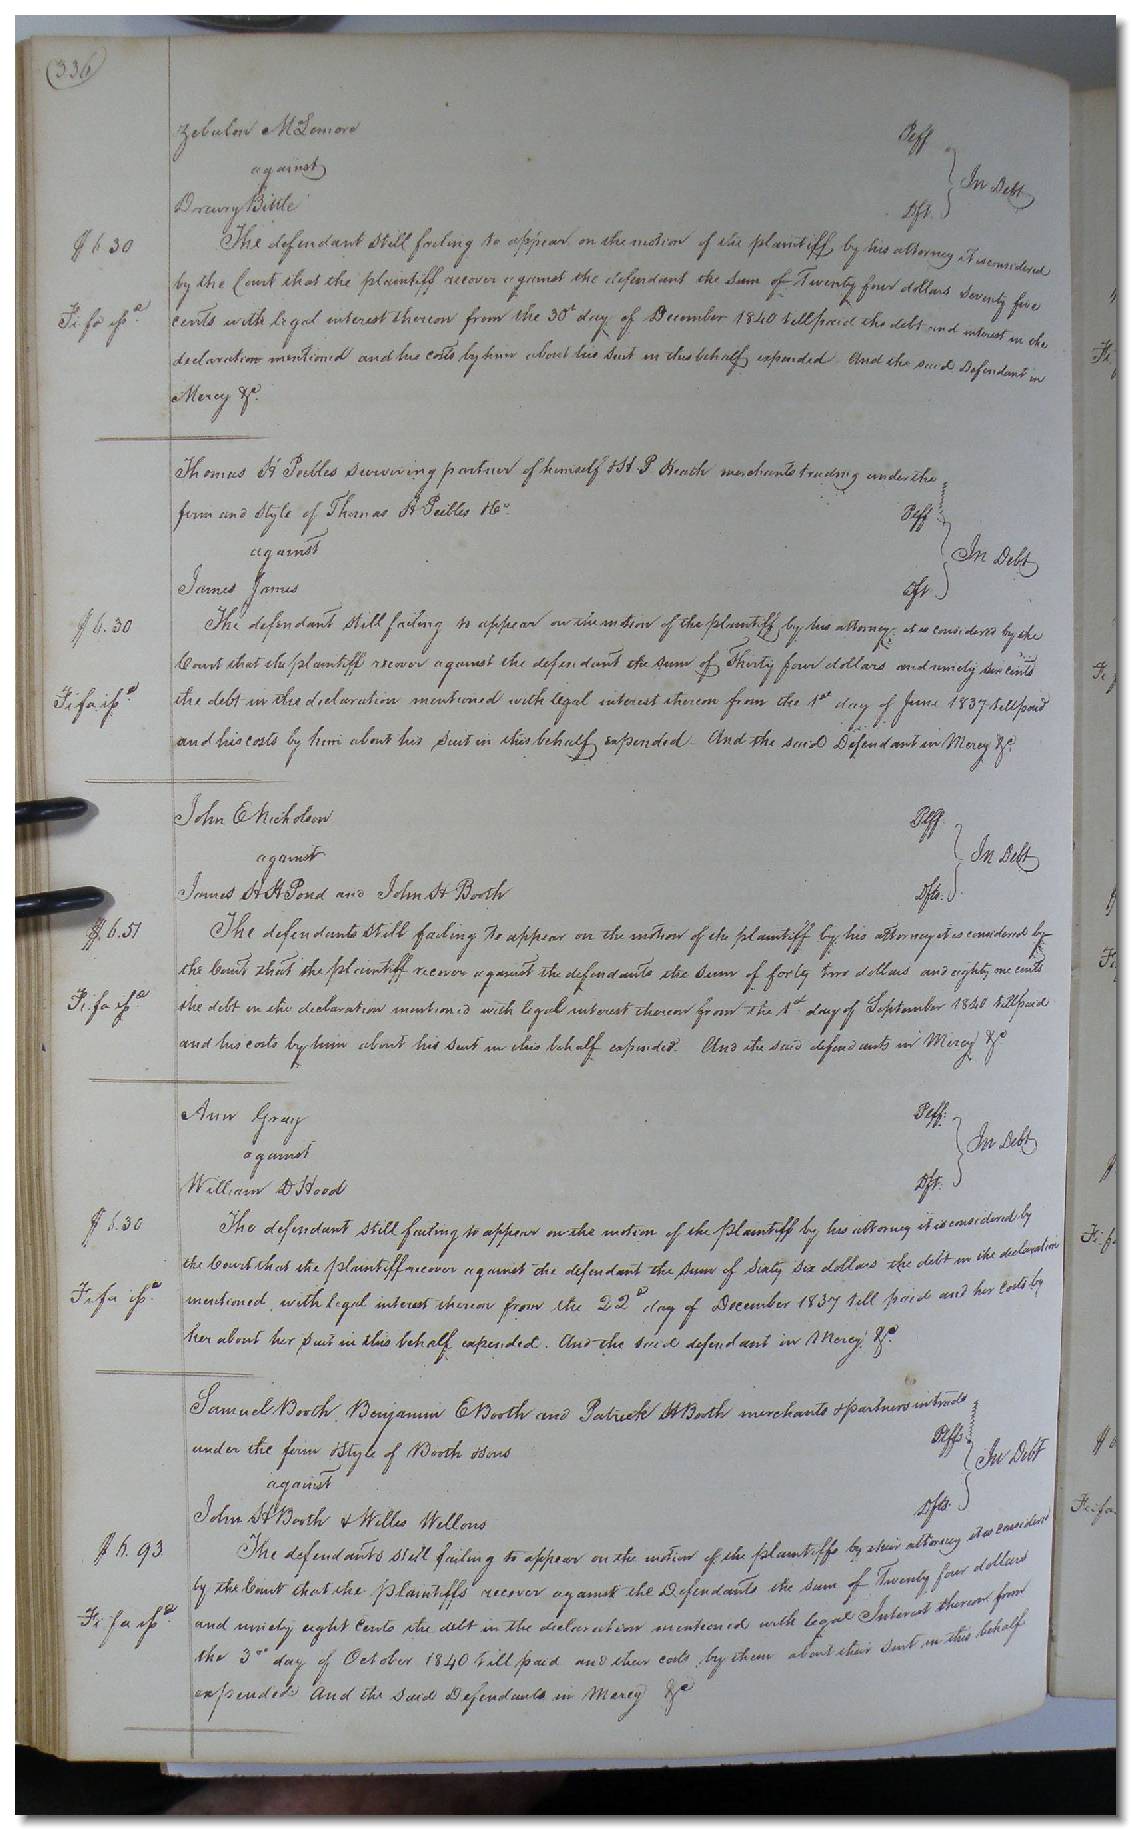 336
Zebulon McLemore Plff
against In Debt
Drewry Bittle Dft.
$6.30 The defendant still failing to appear on the motion of the plaintiff by his attorney it is considered
by the Court that the plaintiff recover against the defendant the sum of Twenty four dollars Seventy five
Fi fa iss.d cents with legal interest thereon from the 30th day of December 1840 till paid the debt and interest in the
declaration mentioned and his costs by him about his suit in this behalf expended And the said Defendant in
Mercy &c.
Thomas H Peebles surviving partner of himself & H. P Heath merchants trading under the
firm and Style of Thomas H Peebles & Co. Plff
against In Debt
James James Dft.
$6.30 The defendant still failing to appear on the motion of the plaintiff by his attorney, it is considered by the
Court that the plaintiff recover against the defendant the sum of Thirty four dollars and ninety six cents
Fi fa iss.d the debt in the declaration mentioned with legal interest thereon from the 1st day of June 1837 till paid
and his costs by him about his suit in this behalf expended. And the said Defendant in Mercy &c.
John E Nicholson Plff.
against In Debt
James H H Pond and John H Booth Dfts.
$6.51 The defendants still failing to appear on the motion of the plaintiff by his attorney it is considered by
the Court that the plaintiff recover against the defendants the sum of forty two dollars and eighty one cents
Fi. fa iss.d the debt in the declaration mentioned with legal interest thereon from the 1st day of September 1840 till paid
and his costs by him about his suit in this behalf expended. And the said defendants in Mercy &c
Ann Gray Plff.
against In Debt
William D Hood Dft.
$6.30 The defendant still failing to appear on the motion of the plaintiff by his attorney it is considered by
the Court that the plaintiff recover against the defendant the sum of sixty six dollars the debt in the declaration
Fi fa iss.d mentioned, with legal interest thereon from the 22d day of December 1837 till paid and her costs by
her about her suit in this behalf expended. And the said defendant in Mercy, &c.
Samuel Booth, Benjamin E Booth and Patrick H Booth merchants & partners in trade
under the firm & Style of Booth & Sons Plffs.
against In Debt
John H Booth & Willis Wellons Dfts.
$6.93 The defendants still failing to appear on the motion of the plaintiffs by their attorney it is considered
by the Court that the Plaintiffs recover against the Defendants the sum of Twenty four dollars
Fi fa iss.d and ninety eight Cents the debt in the declaration mentioned with legal Interest thereon from
the 3rd day of October 1840 till paid and their costs by them about their suit in this behalf
expended And the said Defendants in Mercy &c